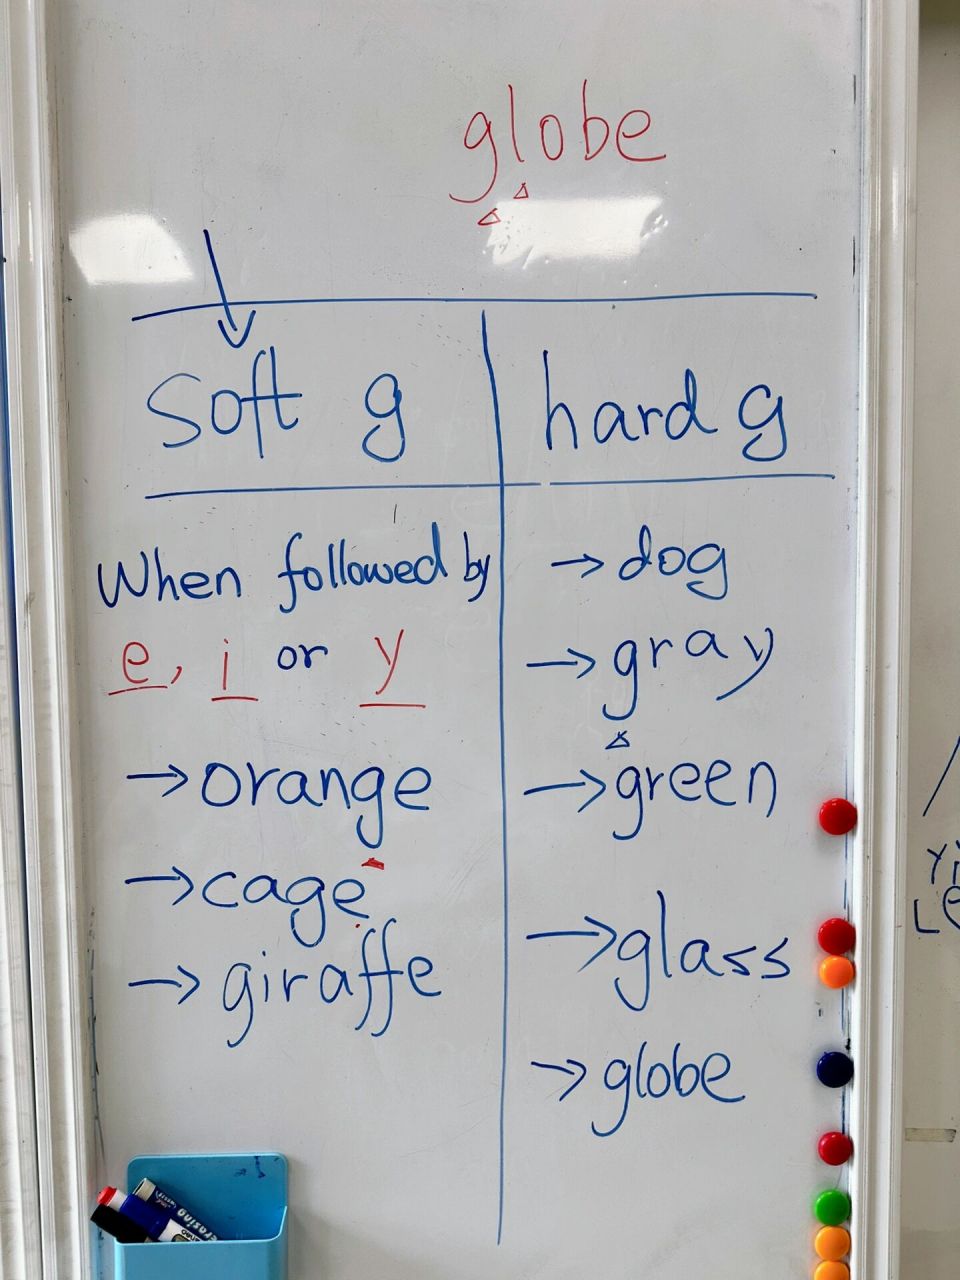 globe
soft g
hard g
When followed by
e, i or y
→ orange
→ cage
→ giraffe
→ dog
→ gray
→ green
→ glass
→ globe